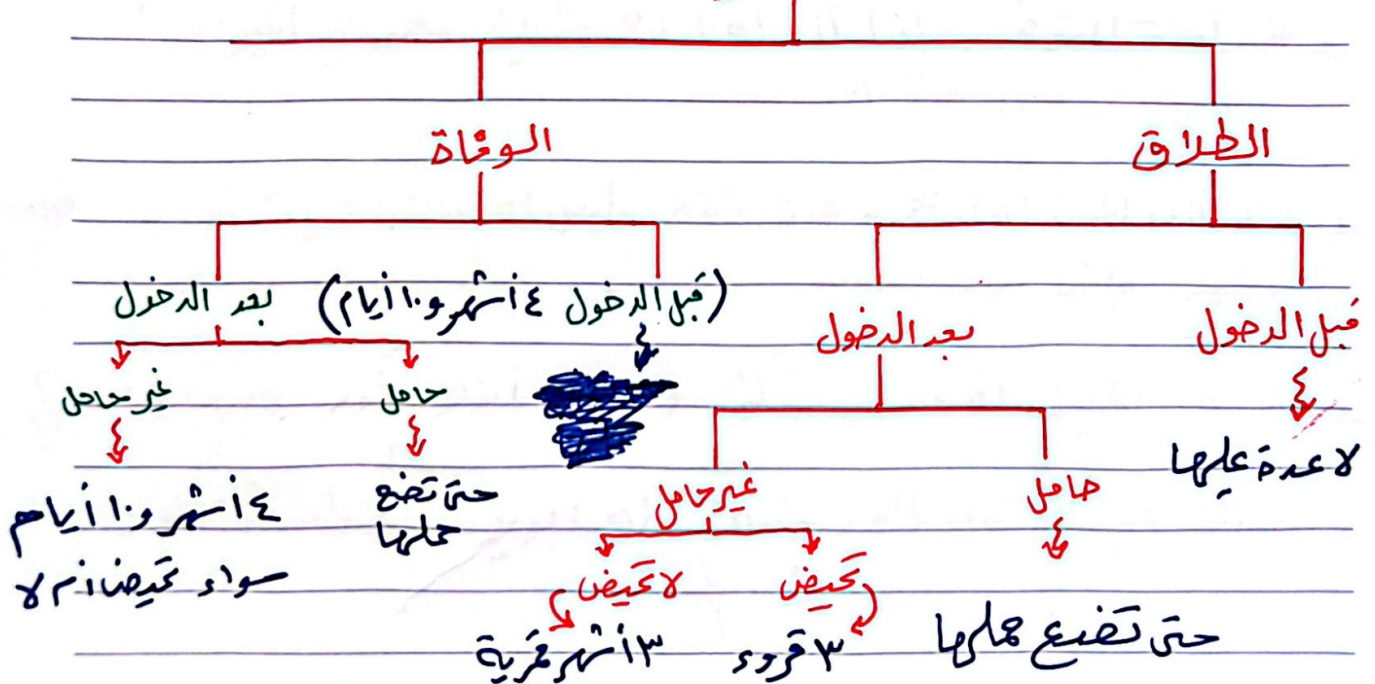 الطلاق
الوفاة
قبل الدخول
لا عدة عليها
بعد الدخول
حامل
حتى تضع حملها
غير حامل
تحيض
٣ قروء
لا تحيض
٣ أشهر قمرية
(قبل الدخول ٤ أشهر و١٠ أيام)
بعد الدخول
حامل
حتى تضع
حملها
غير حامل
٤ أشهر و١٠ أيام
سواء تحيض أم لا